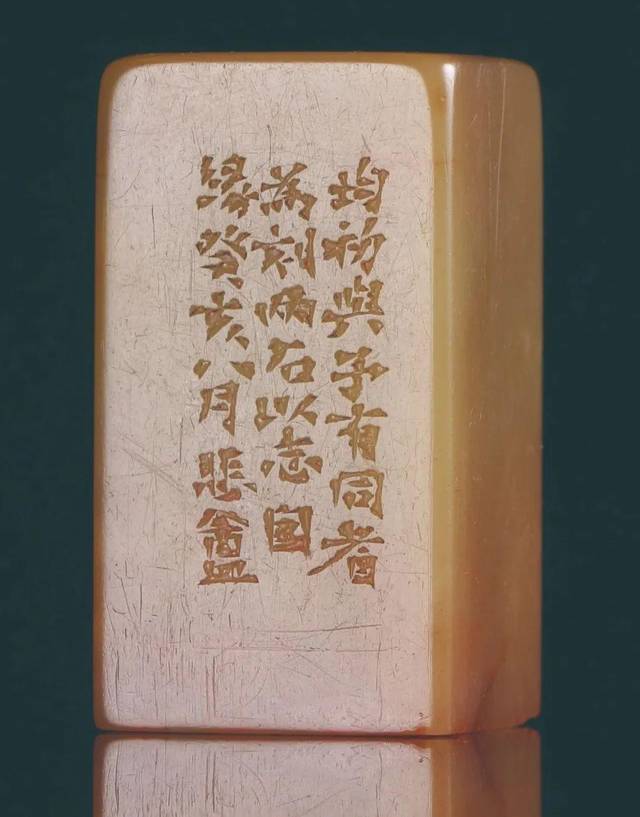 均初與予有同耆
為刻兩石以志因
緣癸亥八月悲盦